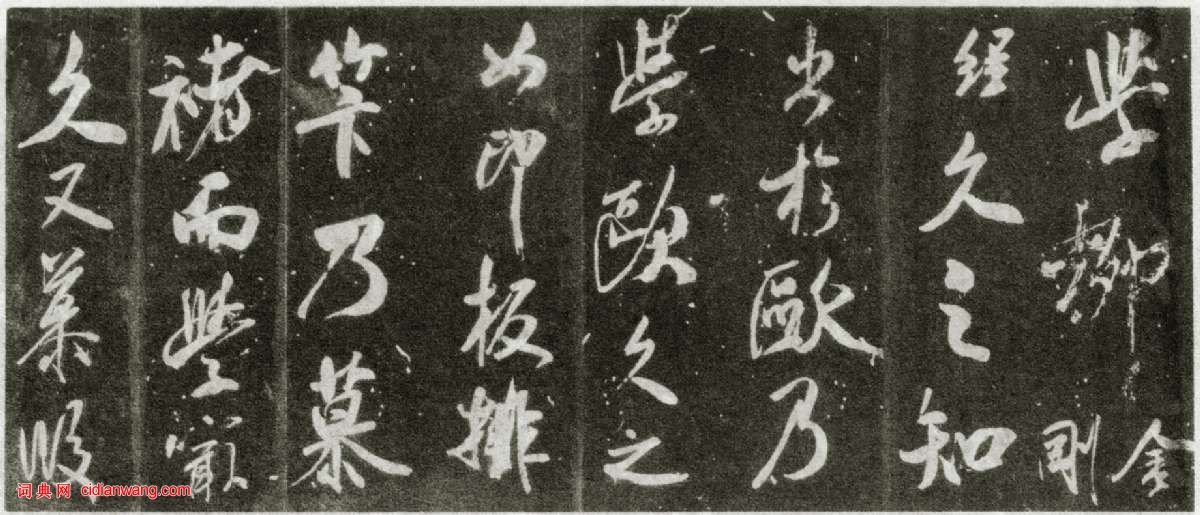 學柳金剛
經久之知
出於歐乃
學歐久之
如印板排
笇乃慕
褚而學最
久又慕段
詞典网 cidianwang.com